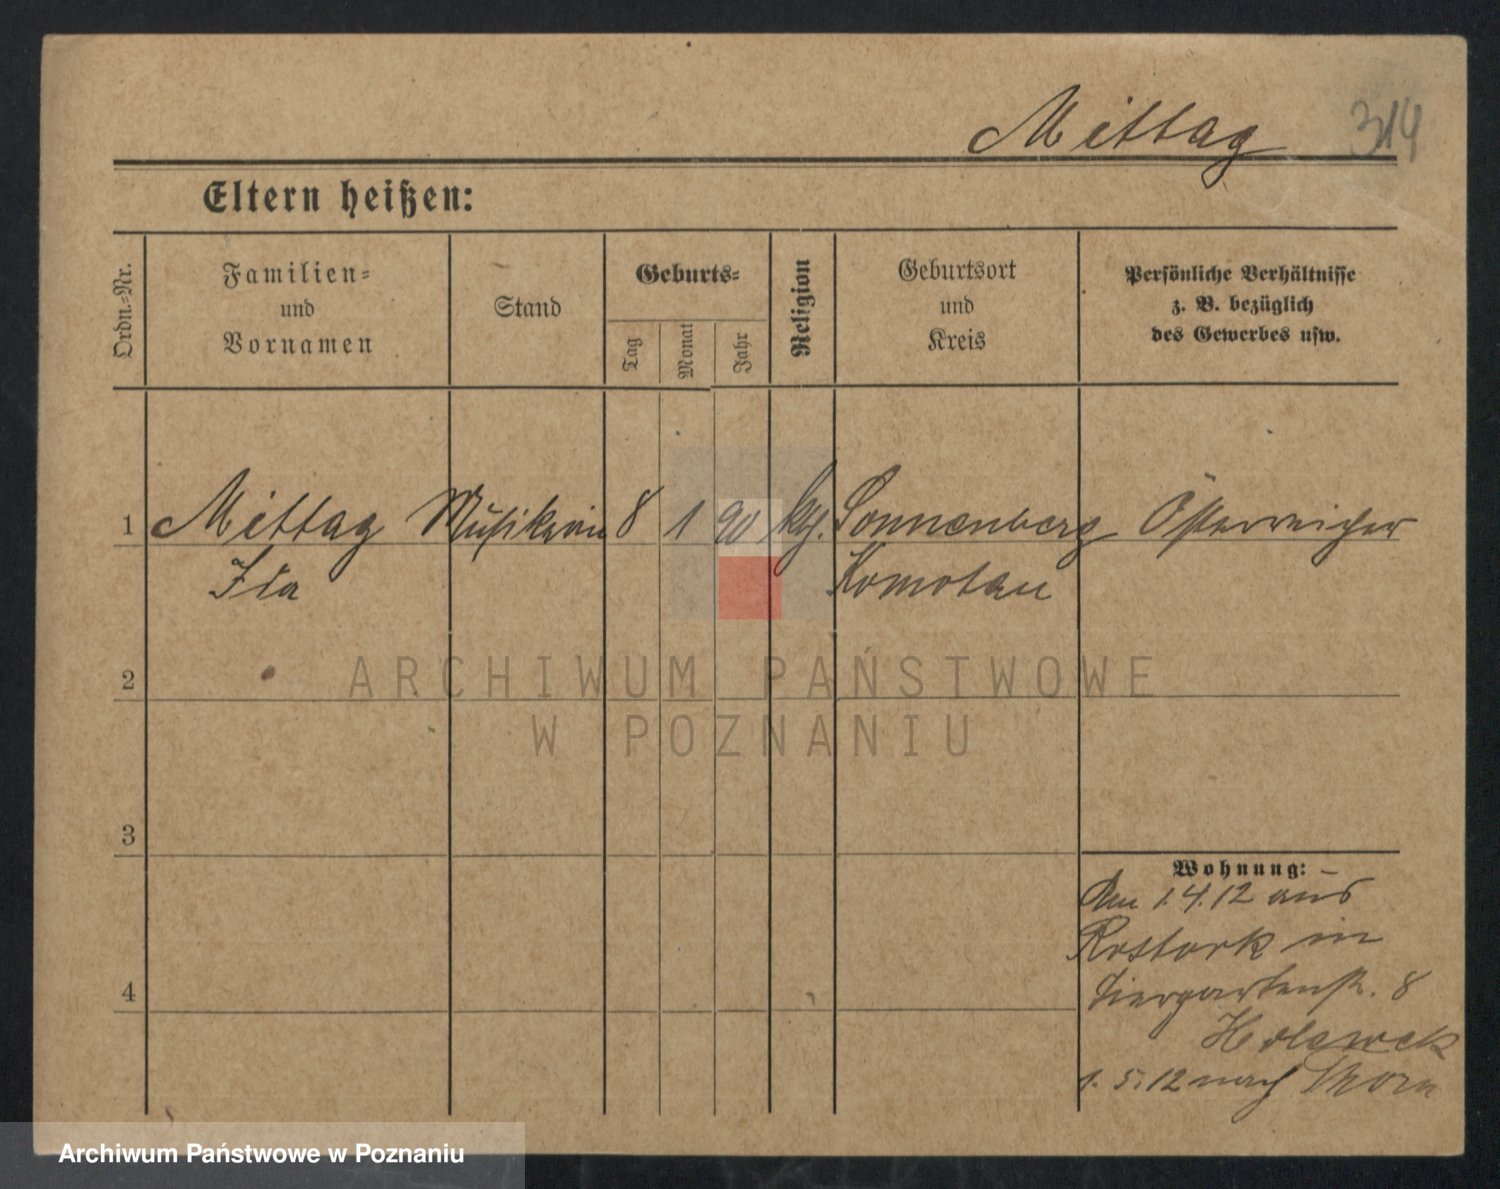 Mittag 314
Eltern heißen:
Ordn.-Nr.
Familien-
und
Vornamen
Stand
Geburts-
Tag
Monat
Jahr
Religion
Geburtsort
und
Kreis
Persönliche Verhältnisse
z. B. bezüglich
des Gewerbes usw.
1 Mittag Musikerin 8 1 90 kth. Sonnenberg Österreicher
Ida Komotau
2
ARCHIWUM PAŃSTWOWE
W POZNANIU
3
Wohnung:
Am 1.4.12 aus
Rostock in
4 Tiergartenstr. 8
1.5.12 nach Thorn
Archiwum Państwowe w Poznaniu